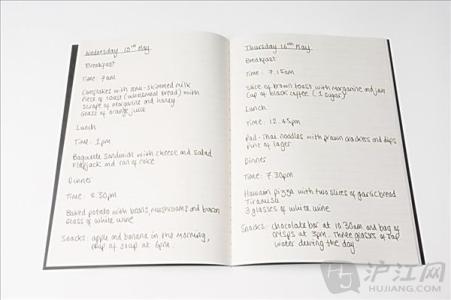 Wednesday 15th May
Breakfast
Time: 7am
Cornflakes with semi-skimmed milk
Piece of toast (wholemeal bread) with
scrape of margarine and honey
Glass of orange juice
Lunch
Time: 1pm
Baguette sandwich with cheese and salad
Flapjack and can of coke
Dinner
Time: 8.30pm
Baked potato with beans, mushrooms and bacon
Glass of white wine
Snacks: apple and banana in the morning,
cup of soup at 6pm.
Thursday 16th May
Breakfast
Time: 7.15am
Slice of brown toast with margarine and jam
Cup of black coffee (1 sugar)
Lunch
Time: 12.45pm
Pad-Thai noodles with prawn crackers and dips
Pint of lager
Dinner
Time: 7.30pm
Hawaiian pizza with two slices of garlic bread
Tiramisu
3 glasses of white wine
Snacks: chocolate bar at 10.30am and bag of
crisps at 3pm. Three glasses of tap
water during the day
沪江网
HUJIANG.COM